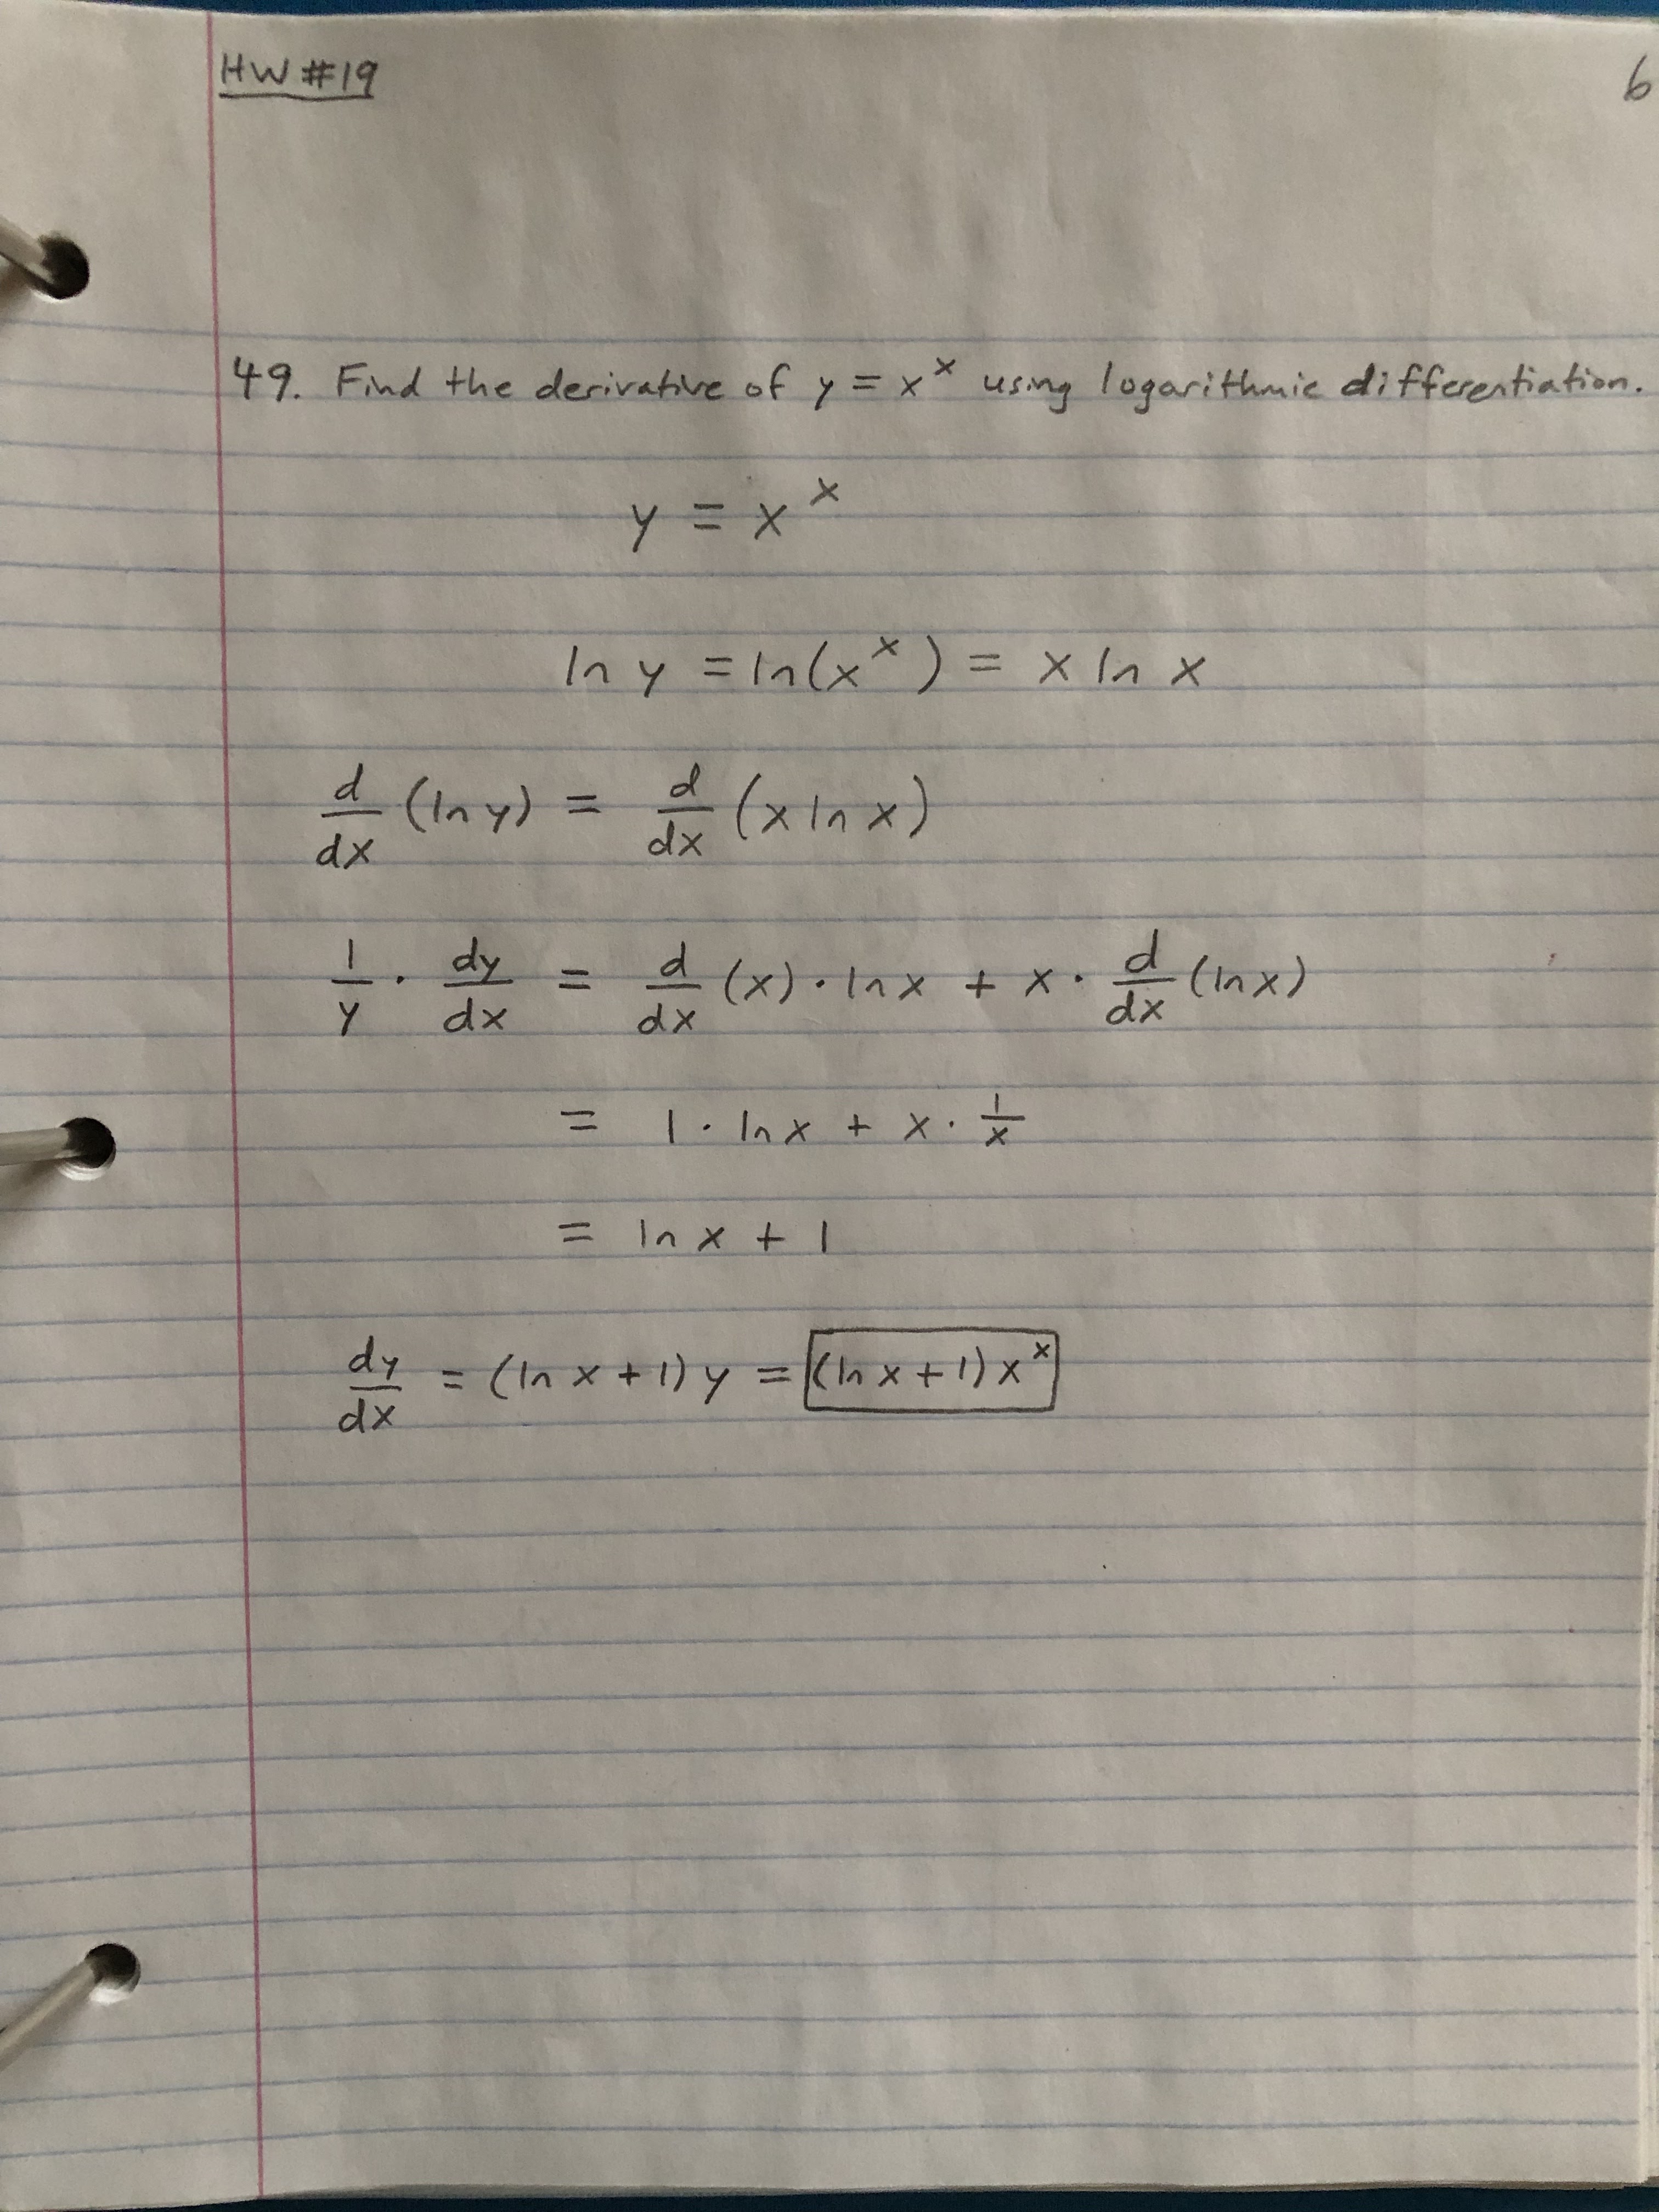 HW #19
6
49. Find the derivative of y = x^x using logarithmic differentiation.
y = x^x
ln y = ln(x^x) = x ln x
d/dx (ln y) = d/dx (x ln x)
1/y · dy/dx = d/dx (x) · ln x + x · d/dx (ln x)
= 1 · ln x + x · 1/x
= ln x + 1
dy/dx = (ln x + 1) y = (ln x + 1) x^x